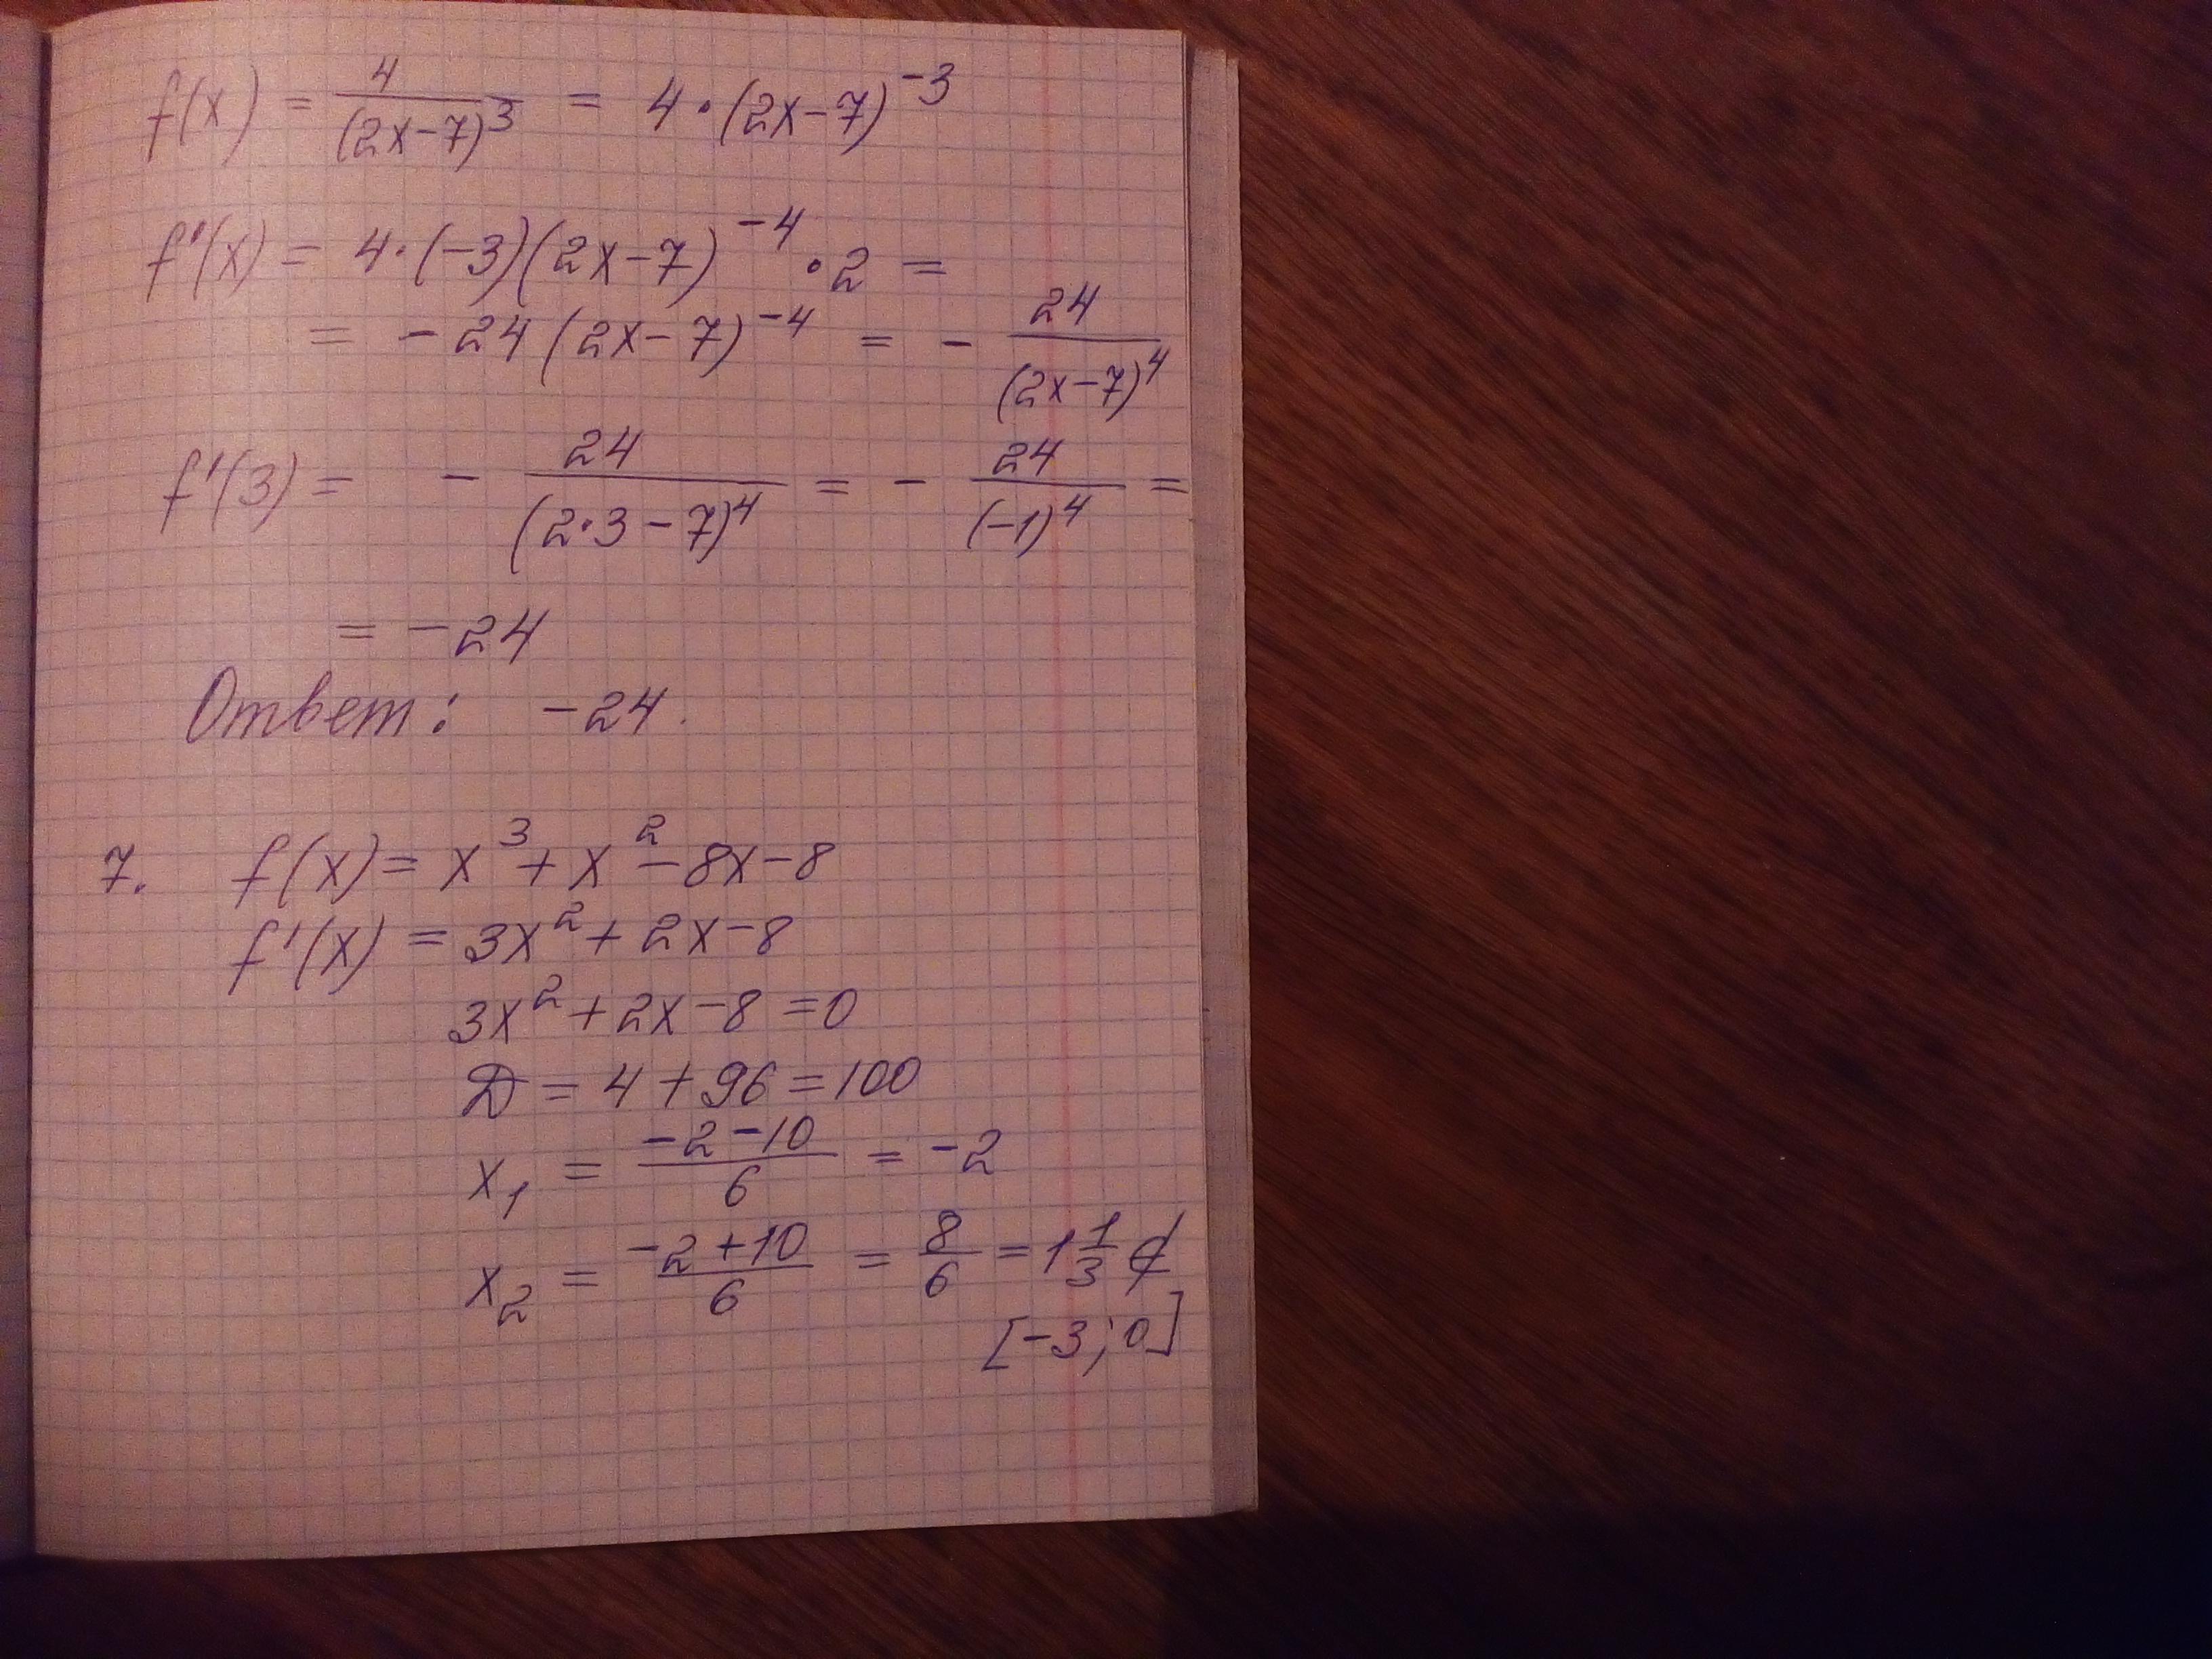 f(x) = 4/(2x-7)³ = 4·(2x-7)⁻³
f'(x) = 4·(-3)(2x-7)⁻⁴·2 =
= -24(2x-7)⁻⁴ = - 24/(2x-7)⁴
f'(3) = - 24/(2·3-7)⁴ = - 24/(-1)⁴ =
= -24
Ответ: -24.
7. f(x) = x³ + x² - 8x - 8
f'(x) = 3x² + 2x - 8
3x² + 2x - 8 = 0
D = 4 + 96 = 100
x₁ = (-2-10)/6 = -2
x₂ = (-2+10)/6 = 8/6 = 1 1/3 ⊄
[-3; 0]